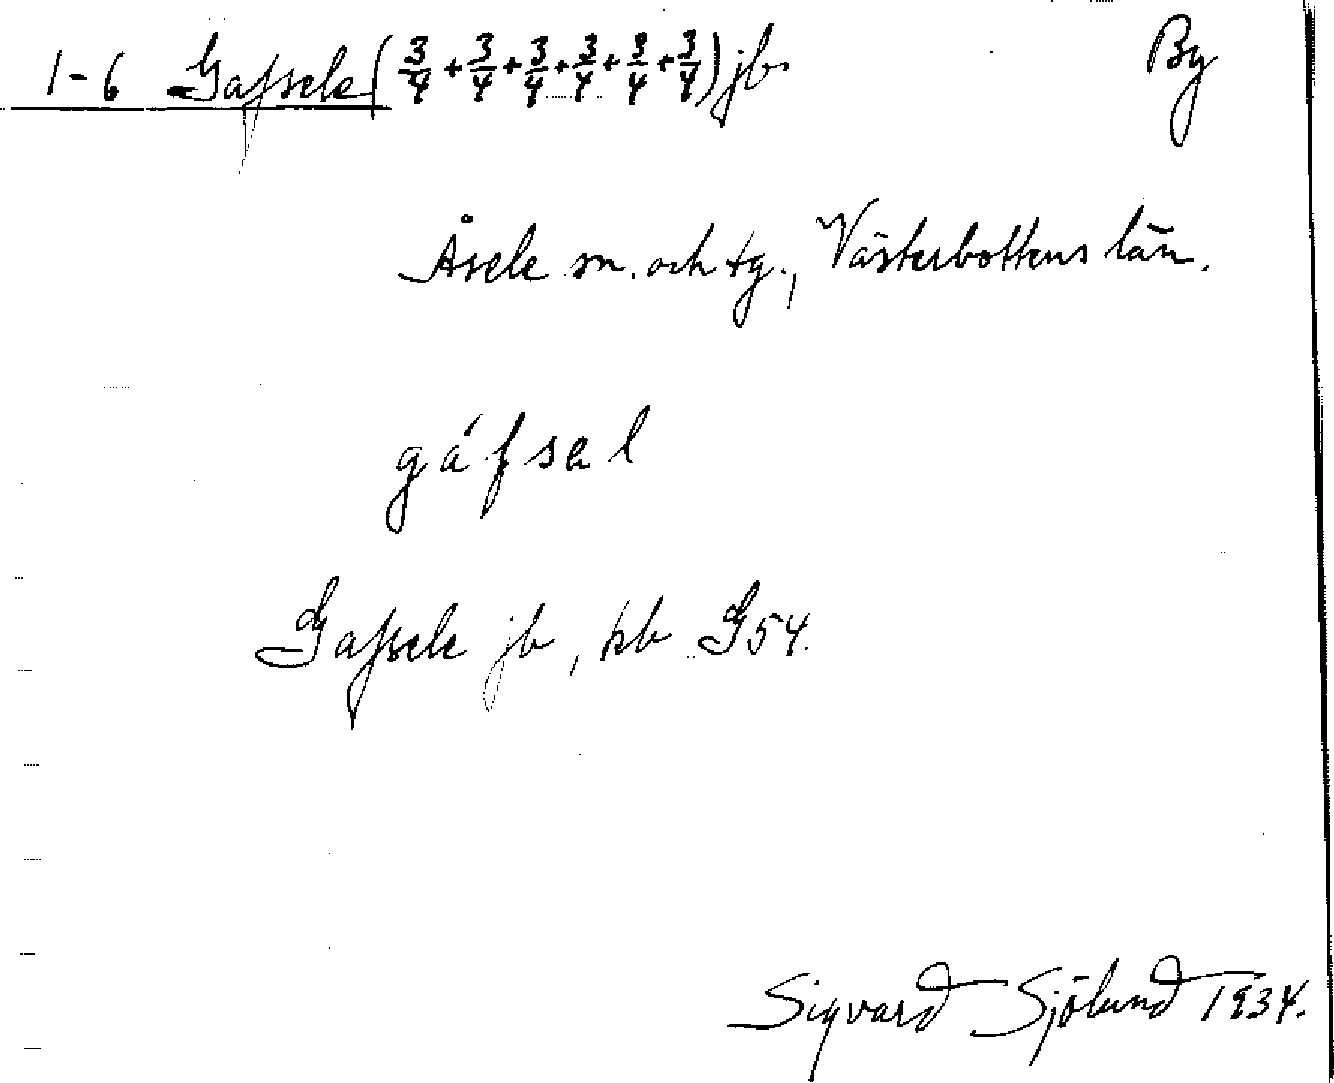 1-6 Gafsele (3/4 + 3/4 + 3/4 + 3/4 + 3/4 + 3/4) jb. By
Åsele sn. och tg., Västerbottens län.
gáfsel
Gafsele jb, hb G54.
Sigvard Sjölund 1934.